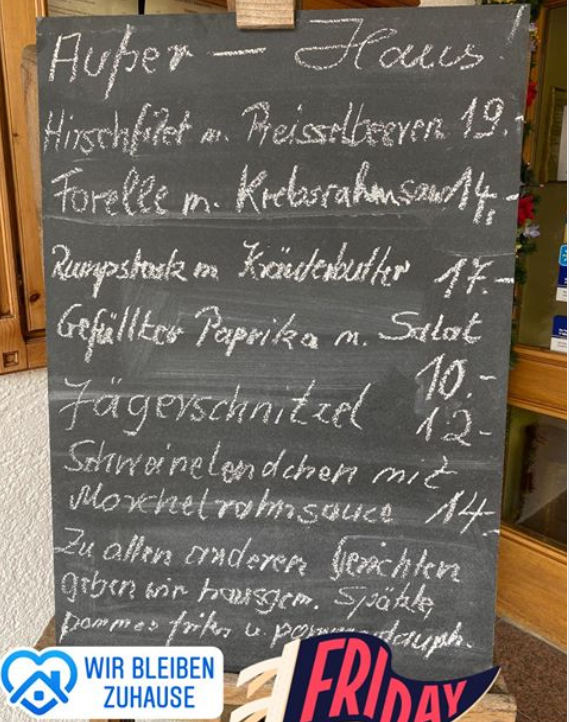 Außer - Haus!
Hirschfilet m. Preisselbeeren 19.-
Forelle m. Krebsrahmsau 14,-
Rumpsteak m Kräuterbutter 17.-
Gefüllter Paprika m. Salat
10.-
Jägerschnitzel 12-
Schweinelendchen mit
Morchelrahmsauce 14-
Zu allen anderen Gerichten
geben wir hausgem. Spätzle,
pommes frites u. pommesdauph.
WIR BLEIBEN
ZUHAUSE
FRIDAY